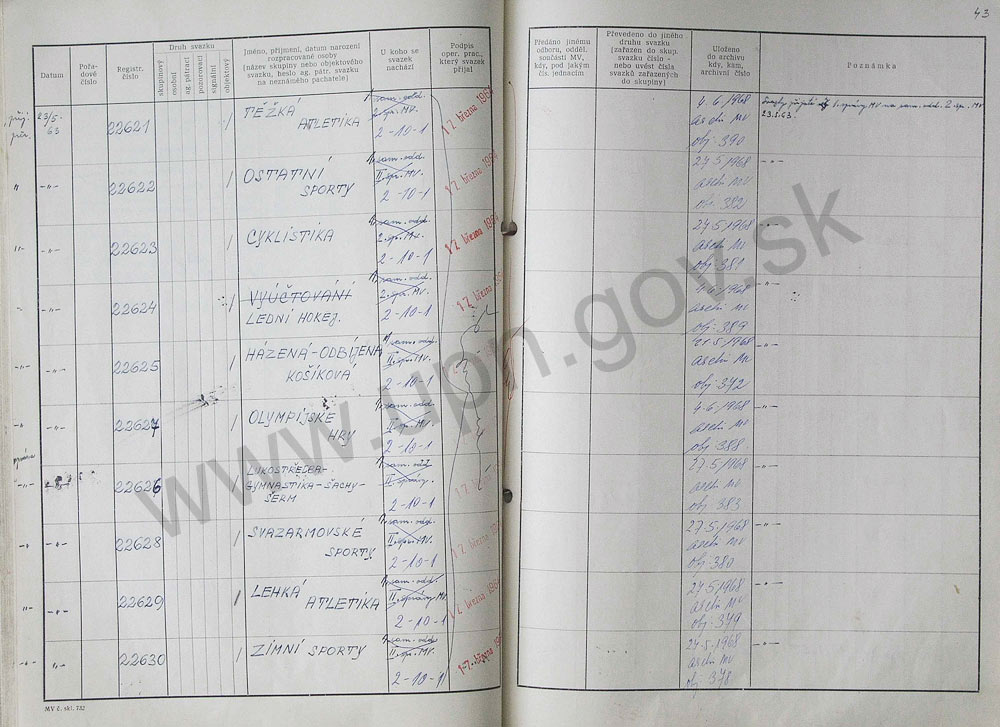 43
Datum
Pořa-
dové
číslo
Registr.
číslo
Druh svazku
skupinový
osobní
ag. pátrací
pozorovací
signální
objektový
Jméno, příjmení, datum narození
rozpracované osoby
(název skupiny nebo objektového
svazku, heslo ag. pátr. svazku
na neznámého pachatele)
U koho se
svazek
nachází
Podpis
oper. prac.,
který svazek
přijal
Předáno jinému
odboru, odděl.
součásti MV,
kdy, pod jakým
čís. jednacím
Převedeno do jiného
druhu svazku
(zařazen do skup.
svazku číslo -
nebo uvést čísla
svazků zařazených
do skupiny)
Uloženo
do archivu
kdy, kam,
archivní číslo
Poznámka
23/5-
63
22621
TĚŽKÁ
ATLETIKA
sam. odd.
2. spr. MV.
2-10-1
17. března 1964
4.6.1968
MV
obj. 390
MV na sam. odd. 2. spr. MV
23.5.63.
22622
OSTATNÍ
SPORTY
sam. odd.
II. spr. MV.
2-10-1
17. března 1964
27.5.1968
MV
obj. 382
22623
CYKLISTIKA
sam. odd.
2. spr. MV.
2-10-1
17. března 1964
27.5.1968
MV
obj. 381
22624
VYÚČTOVÁNÍ
LEDNÍ HOKEJ.
sam. odd.
2. spr. MV.
2-10-1
17. března 1964
4.6.1968
MV
obj. 389
22625
HÁZENÁ-ODBÍJENÁ
KOŠÍKOVÁ
sam. odd.
II. spr. MV.
2-10-1
MV
22627
OLYMPIJSKÉ
HRY
sam. odd.
II. spr. MV.
2-10-1
4.6.1968
MV
obj. 388
22626
LUKOSTŘELBA-
GYMNASTIKA-ŠACHY-
ŠERM
sam. odd.
II. správy.
2-10-1
27.5.1968
MV
obj. 383
22628
SVAZARMOVSKÉ
SPORTY
sam. odd.
II. spr. MV.
2-10-1
17. března
27.5.1968
MV
obj. 380
22629
LEHKÁ
ATLETIKA
sam. odd.
II. správy MV
2-10-1
17. března 1964
27.5.1968
MV
obj. 379
22630
ZIMNÍ SPORTY
sam. odd.
II. spr. MV.
2-10-1
17. března
27.5.1968
MV
obj. 378
MV č. skl. 732
www.upn.gov.sk